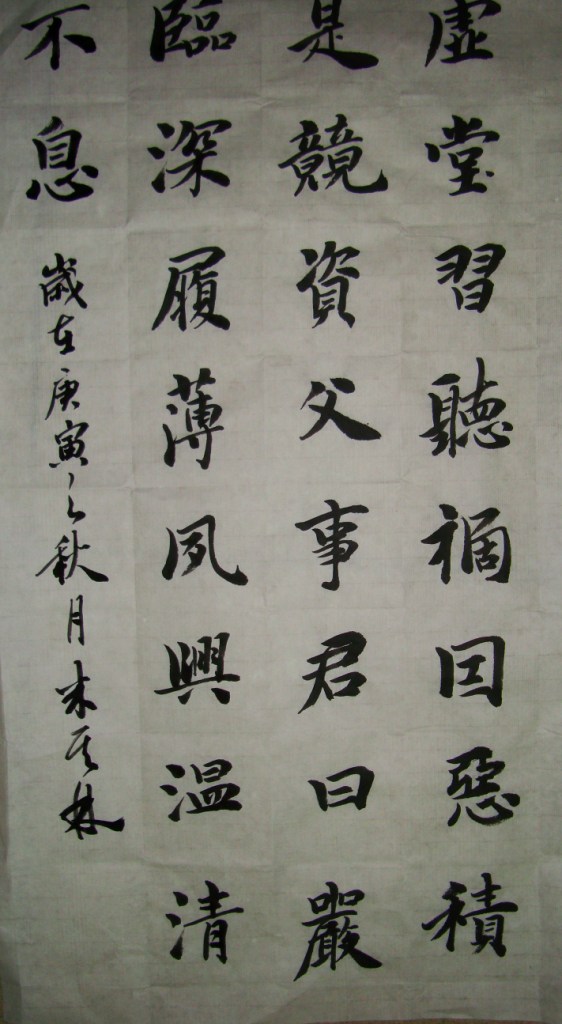 虛堂習聽禍因惡積
是競資父事君曰嚴
臨深履薄夙興温清
不息
歲在庚寅之秋月